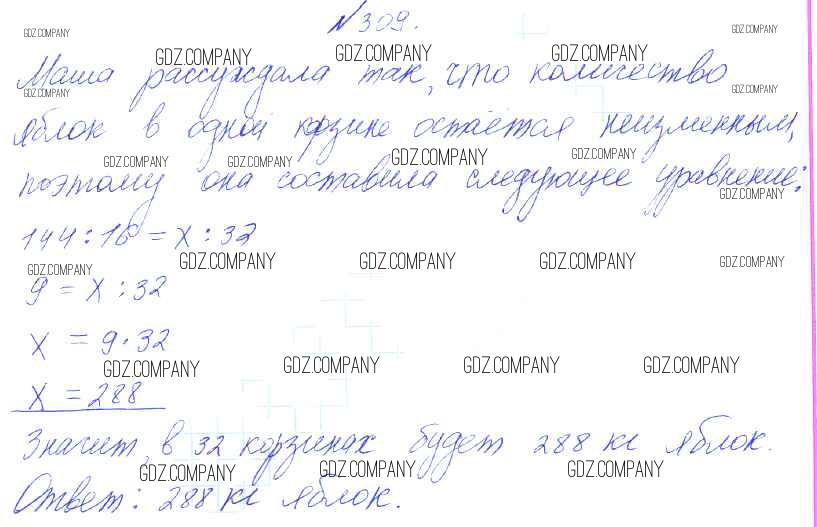 №309.
Маша рассуждала так, что количество
яблок в одной корзине остаётся неизменным,
поэтому она составила следующее уравнение:
144:16 = x:32
9 = x:32
x = 9·32
x = 288
Значит, в 32 корзинах будет 288 кг яблок.
Ответ: 288 кг яблок.
GDZ.COMPANY GDZ.COMPANY
GDZ.COMPANY GDZ.COMPANY GDZ.COMPANY
GDZ.COMPANY GDZ.COMPANY
GDZ.COMPANY GDZ.COMPANY GDZ.COMPANY GDZ.COMPANY
GDZ.COMPANY
GDZ.COMPANY GDZ.COMPANY GDZ.COMPANY GDZ.COMPANY GDZ.COMPANY
GDZ.COMPANY GDZ.COMPANY GDZ.COMPANY GDZ.COMPANY
GDZ.COMPANY GDZ.COMPANY GDZ.COMPANY